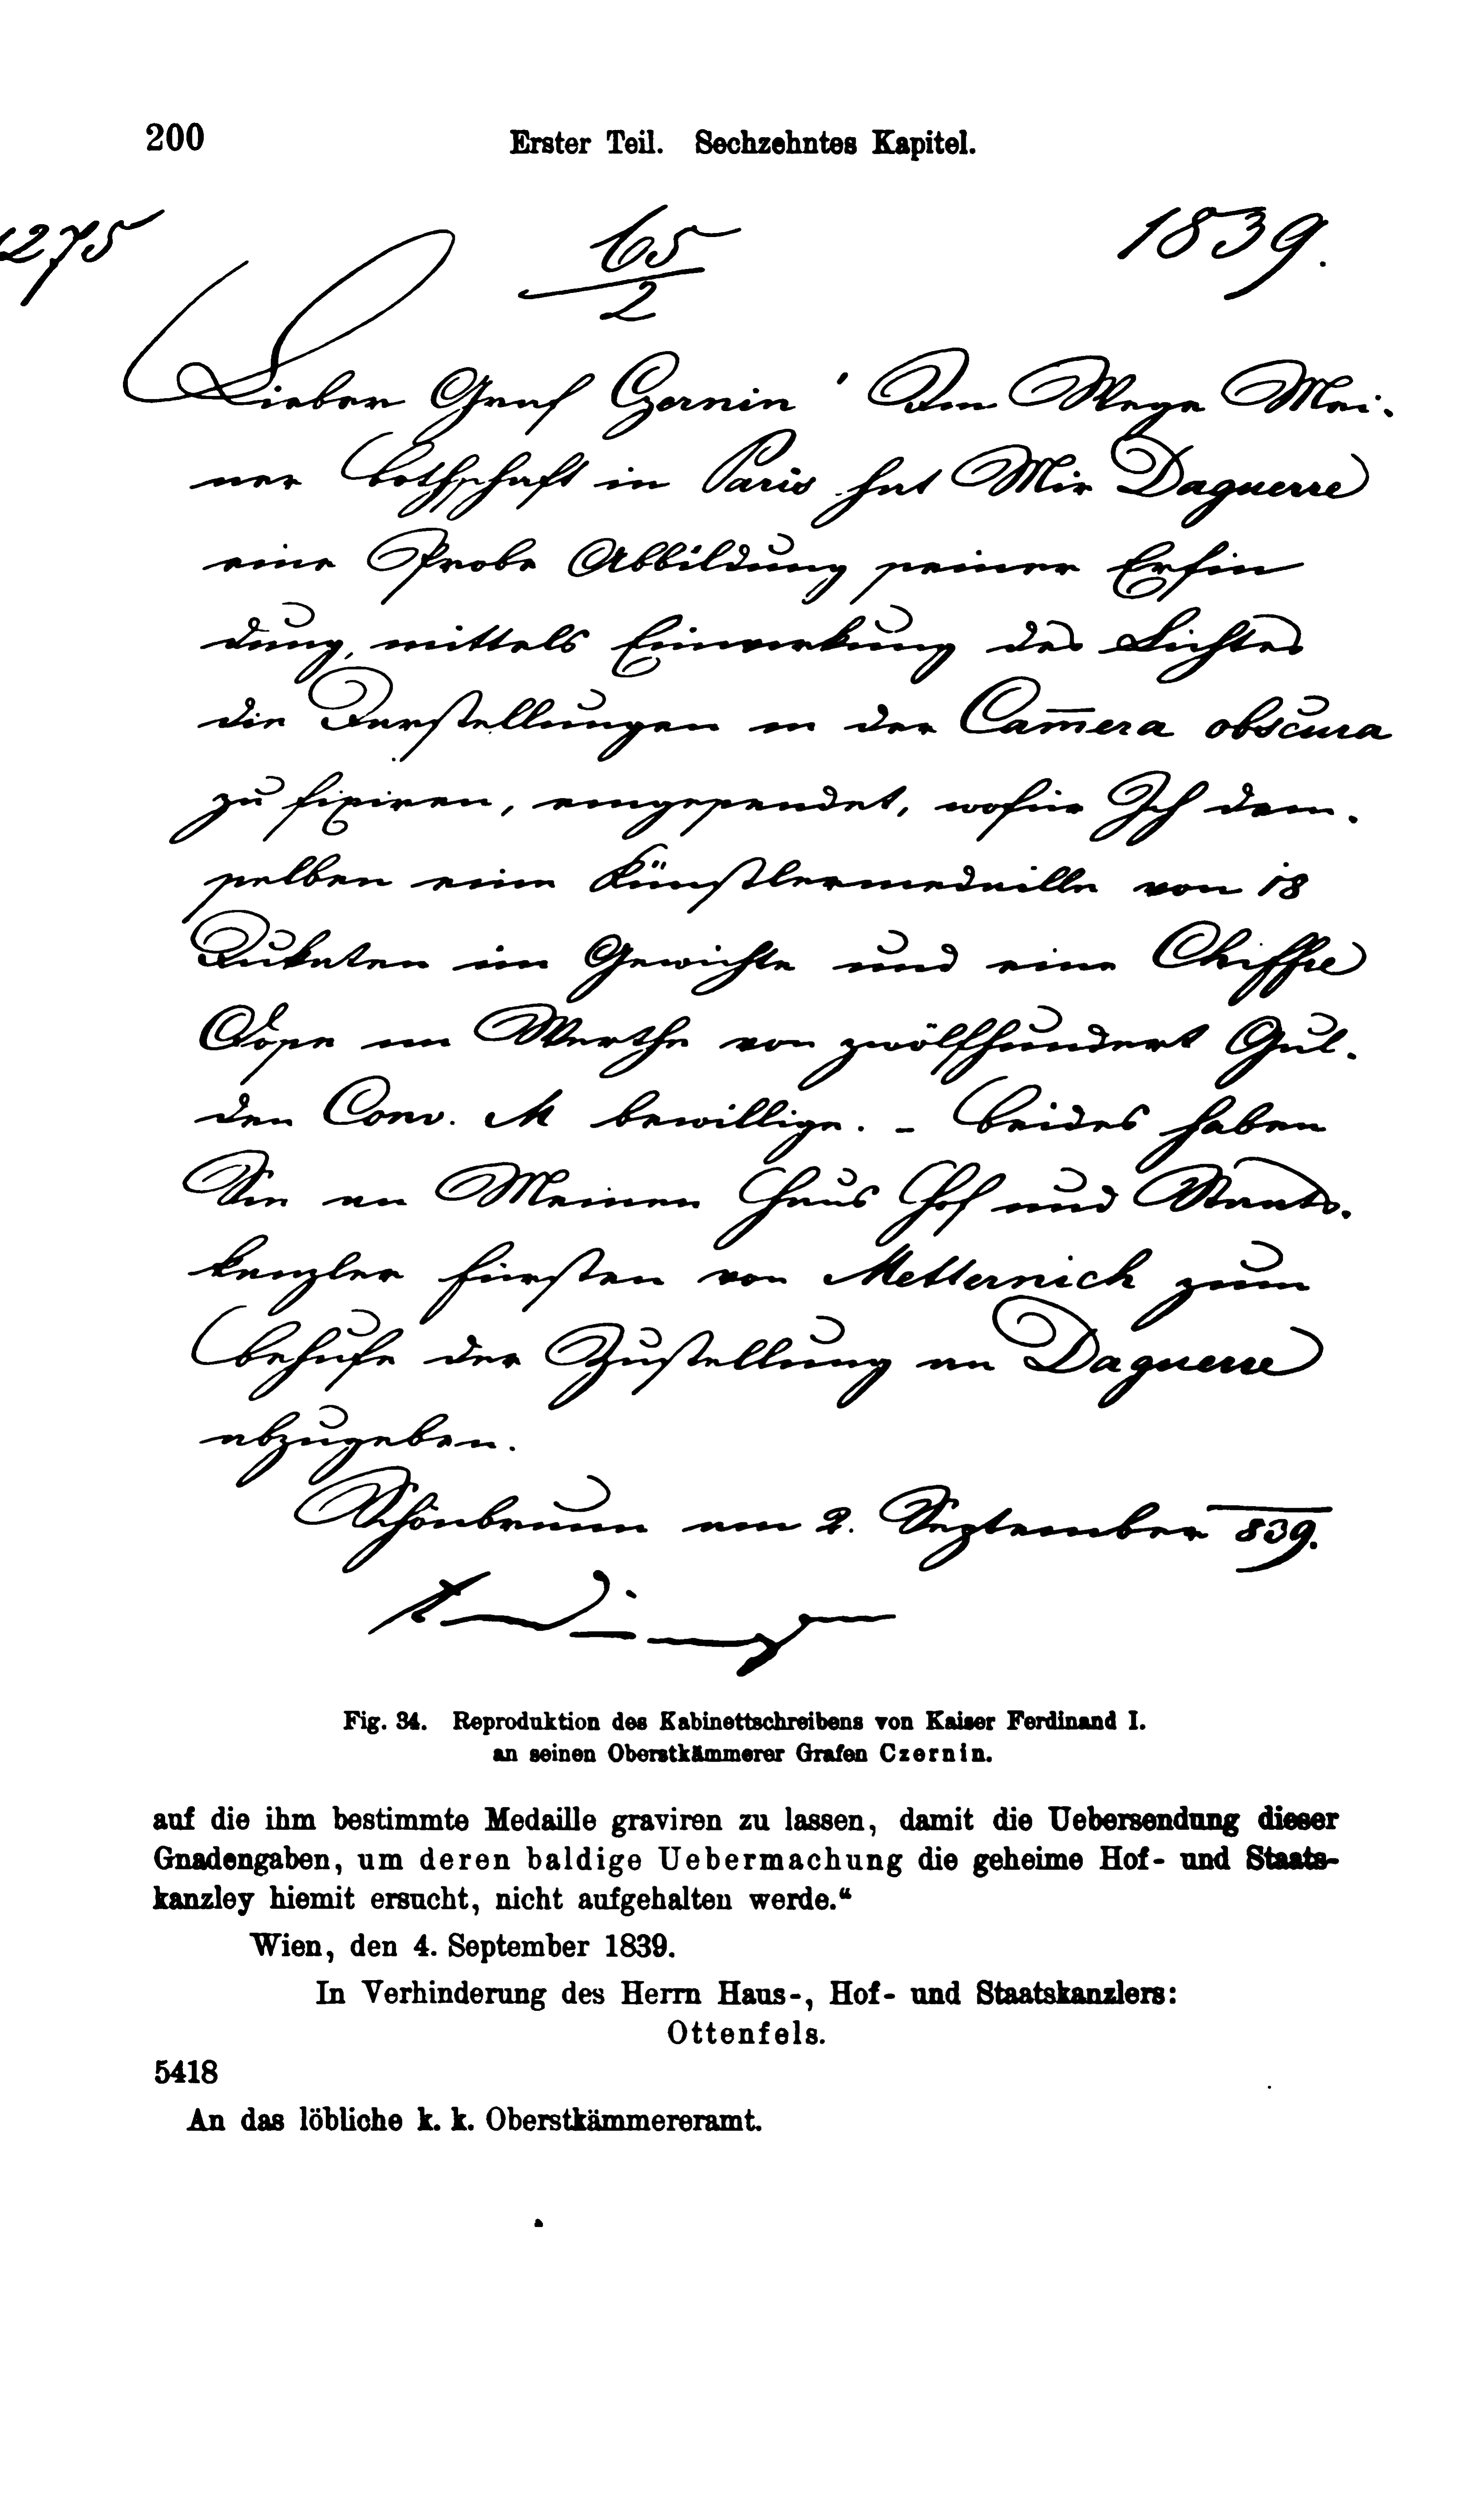 200
Erster Teil. Sechzehntes Kapitel.
1275
65
2
1839.
Lieber Graf Czernin! Im Wege Mei-
ner Bothschaft in Paris hat Mir Daguerre
eine Probe Abbildung seiner Erfin
dung, mittels Einwirkung des Lichtes
die Darstellungen in der Cam̅era obscura
zu fixiren, eingesendet, wofür Ich dem-
selben eine Künstlermedaille von 18
Dukaten im Gewichte und eine Chiffre
Dose im Werthe von zwölfhundert Gul-
den Conv. M bewillige. – Beides haben
Sie an Meinen Haus Hof und Staats-
kanzler Fürsten von Metternich zum
Behufe der Zustellung an Daguerre
abzugeben.
Schönbrunn am 2. September 839.
Fig. 34. Reproduktion des Kabinettschreibens von Kaiser Ferdinand I.
an seinen Oberstkämmerer Grafen Czernin.
auf die ihm bestimmte Medaille graviren zu lassen, damit die Uebersendung dieser
Gnadengaben, um deren baldige Uebermachung die geheime Hof- und Staats-
kanzley hiemit ersucht, nicht aufgehalten werde.“
Wien, den 4. September 1839.
In Verhinderung des Herrn Haus-, Hof- und Staatskanzlers:
Ottenfels.
5418
An das löbliche k. k. Oberstkämmereramt.